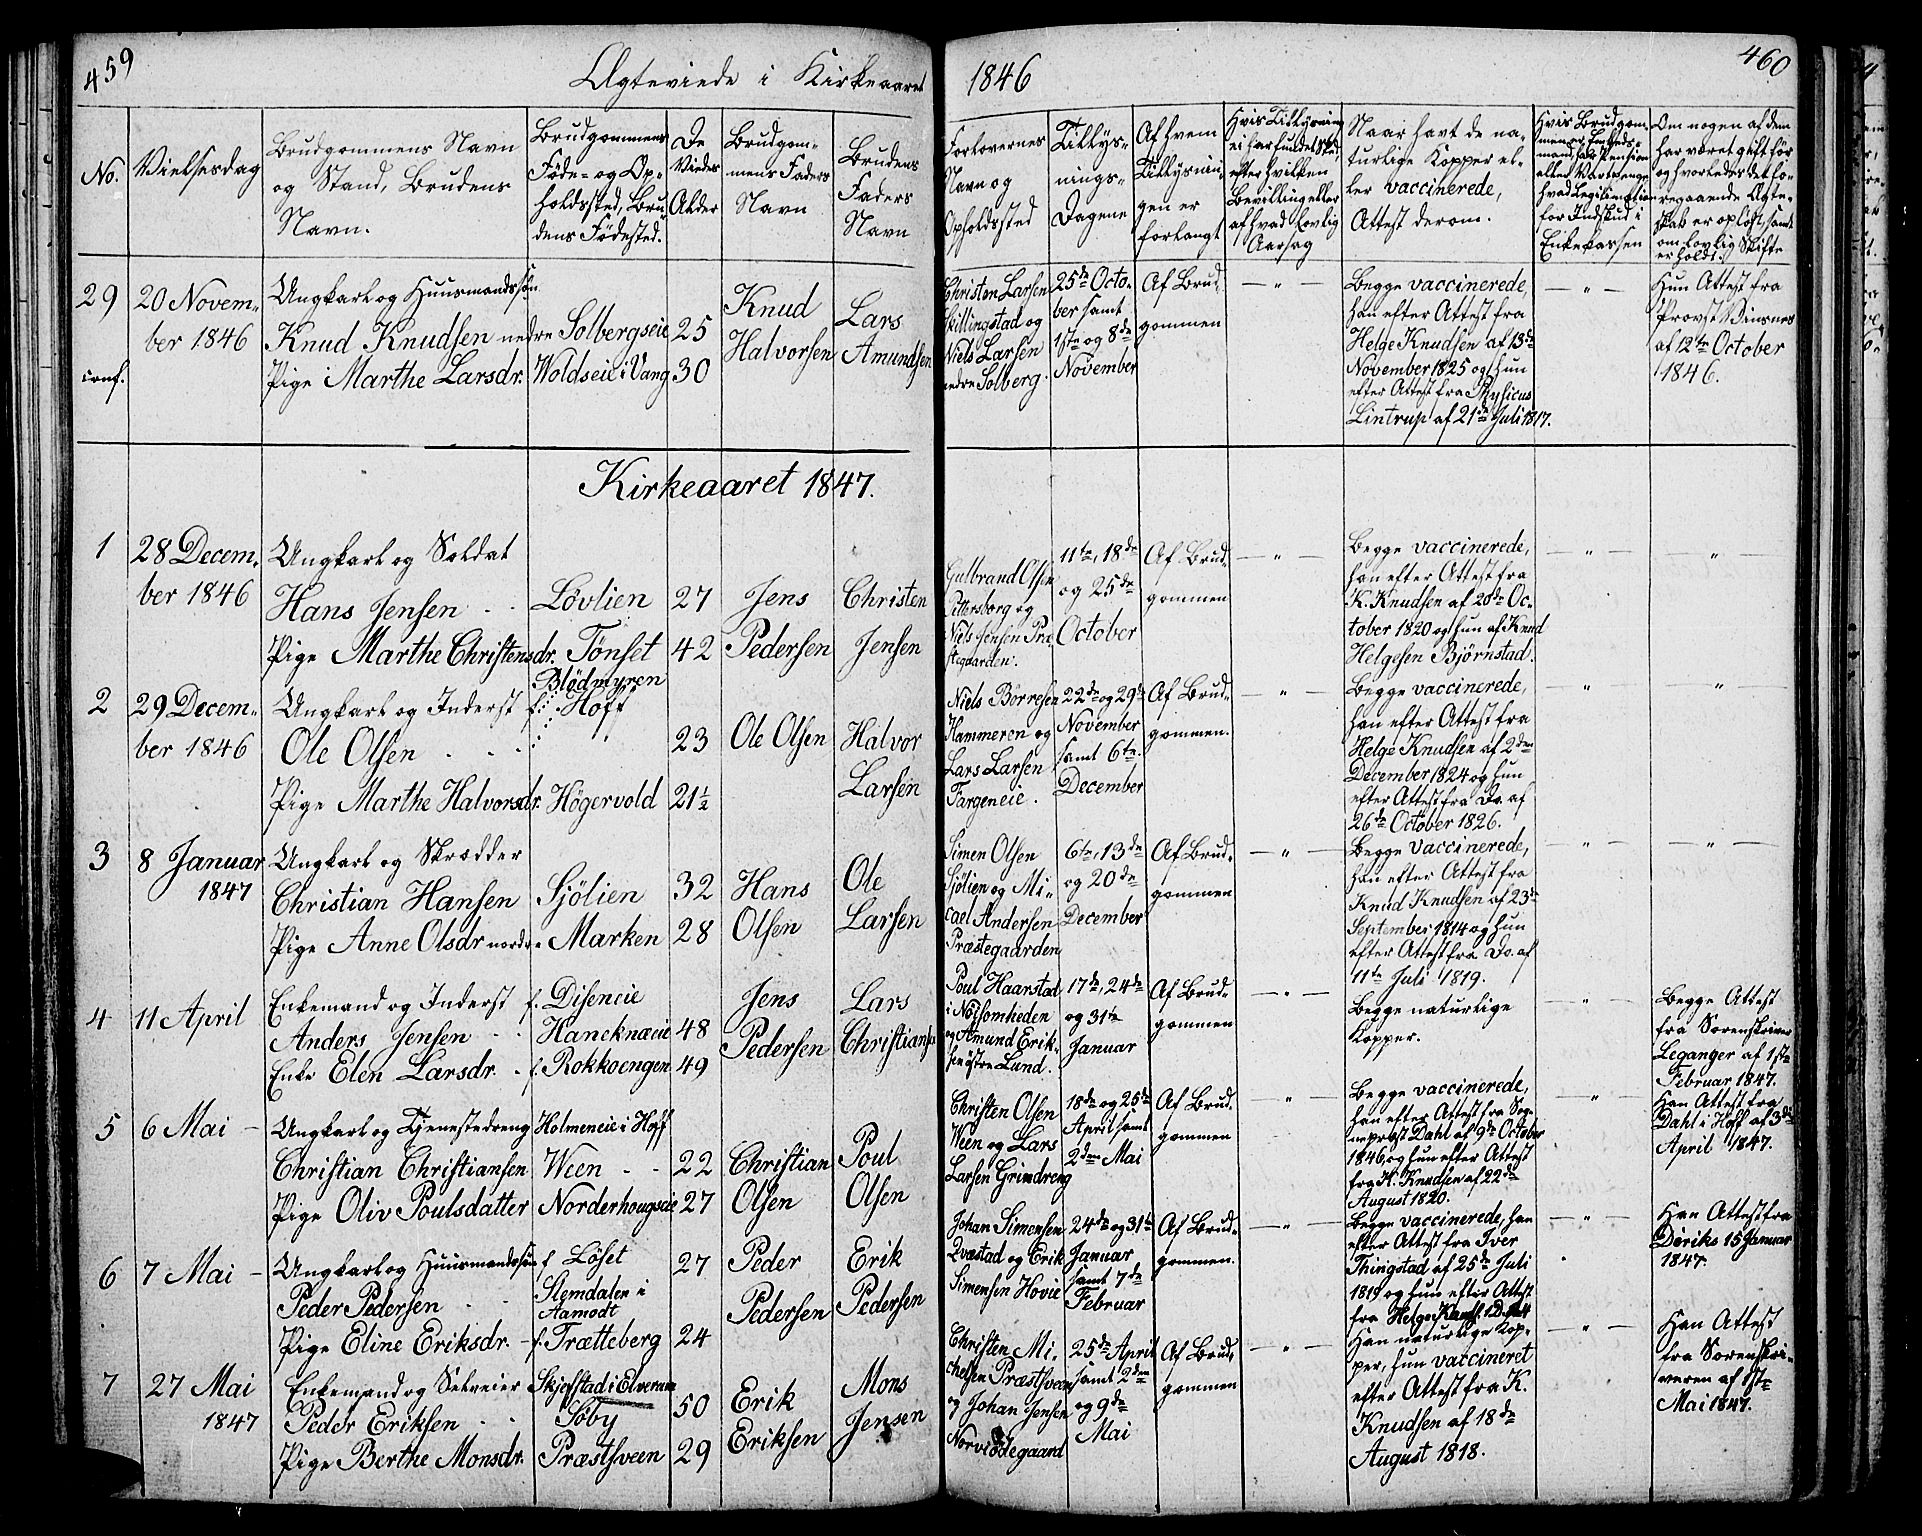 459
Ægteviede i Kirkeaaret 1846
460
No.
Vielsesdag
Brudgommens Navn
og Stand, Brudens
Navn.
Brudgommens
Føde- og Op-
holdssted, Bru-
dens Fødested.
De
Viedes
Alder
Brudgom-
mens Faders
Navn
Brudens
Faders
Navn
Forlovernes
Navn og
Opholdssted
Tillys-
nings-
Dagene
Af hvem
Tillysnin-
gen er
forlangt
Hvis Tillysning
ei har fundet Sted,
efter hvilken
Bevilling eller
af hvad Lovlig
Aarsag
Naar havt de na-
turlige Kopper el-
ler vaccinerede,
Attest derom.
Hvis Brudgom-
men og Embeds-
mand, har Pension
eller Vartpenge
hvad Legitimation
for Indskud i
Enkekassen
Om nogen af dem
har været gift før
og hvorledes det fo-
regaaende Ægte-
skab er opløst, samt
om lovlig Skifte
er holdt.
29
conf.
20 Novem-
ber 1846
Ungkarl og Huusmandssøn
Knud Knudsen nedre Solbergseie
Pige Marthe Larsdr. Woldseie i Vang
25
30
Knud
Halvorsen
Lars
Amundsen
Christen Larsen
Skillingstad og
Niels Larsen
nedre Solberg.
25de Octo-
ber samt
1ste og 8de
November
Af Brud-
gommen
Begge vaccinerede,
han efter Attest fra
Helge Knudsen af 13de
November 1825 og hun
efter Attest fra Physicus
Lintrup af 21de Juli 1817.
Hun Attest fra
Provst Vinsnes
af 12te October
1846.
Kirkeaaret 1847.
1
28 Decem-
ber 1846
Ungkarl og Soldat
Hans Jensen
Pige Marthe Christensdr.
Løvlien
Tønset
27
42
Jens
Pedersen
Christen
Jensen
Gulbrand Olsen
Pettersborg og
Niels Jensen Præ-
stegaarden.
11te, 18de
og 25de
October
Af Brud-
gommen
Begge vaccinerede,
han efter Attest fra
K. Knudsen af 20de Oc-
tober 1820 og hun af Knud
Helgesen Bjørnstad.
2
29 Decem-
ber 1846
Ungkarl og Inderst
Ole Olsen
Pige Marthe Halvorsdr.
Blødmyren
f. i Hoff
Högervold
23
21½
Ole Olsen
Halvor
Larsen
Niels Börresen
Hammeren og
Lars Larsen
Fargeneie.
22de og 29de
November
samt 6te
December
Af Brud-
gommen.
Begge vaccinerede,
han efter Attest fra
Helge Knudsen af 2den
December 1824 og hun
efter Attest fra Do. af
26de October 1826.
3
8 Januar
1847
Ungkarl og Skrædder
Christian Hansen
Pige Anne Olsdr nordre Marken
Sjölien
32
28
Hans
Olsen
Ole
Larsen
Simen Olsen
Sjölien og Mi-
cael Andersen
Præstegaarden
6te, 13de
og 20de
December
Af Brud-
gommen
Begge vaccinerede,
han efter Attest fra
Knud Knudsen af 23de
September 1814 og hun
efter Attest fra Do. af
11te Juli 1819.
4
11 April
Enkemand og Inderst
Anders Jensen
Enke Elen Larsdr.
f. Diseneie
Hancknæeie
f. Rokkoengen
48
49
Jens
Pedersen
Lars
Christiansen
Poul Haarstad
i Nöisomheden
og Amund Erik-
sen østre Lund.
17de, 24de
og 31te
Januar
Af Brud-
gommen
Begge naturlige
Kopper.
Begge Attest
fra Sorenskriver
Leganger af 1ste
Februar 1847.
5
6 Mai
Ungkarl og Tjenestedreng
Christian Christiansen
Pige Oliv Poulsdatter
Holmeneie i Hoff
Ween
Norderhougseie
22
27
Christian
Olsen
Poul
Olsen
Christen Olsen
Ween og Lars
Larsen Grindreng
18de og 25de
April samt
2den Mai
Af Brud-
gommen
Begge vaccinerede,
han efter Attest fra Sog-
neprost Dahl af 9de October
1846, og hun efter Attest
fra K. Knudsen af 22de
August 1820.
Han Attest fra
Dahl i Hoff af 3die
April 1847.
6
7 Mai
Ungkarl og Huusmandssøn
Peder Pedersen
Pige Eline Eriksdr.
f Löset
Stemdalen i
Aamodt
f. Trætteberg
27
24
Peder
Pedersen
Erik
Pedersen
Johan Simensen
Qvæstad og Erik
Simensen Hovie
24de og 31te
Januar
samt 7de
Februar
Af Brud-
gommen.
Begge vaccinerede, han
efter Attest fra Iver
Thingstad af 25de Juli
1819 og hun efter Attest
fra Helge
Han Attest fra
Döriks 15 Januar
1847.
7
27 Mai
1847
Enkemand og Selveier
Peder Eriksen
Pige Berthe Monsdr.
Skjefstad i Elverum
Söby
Præstsveen
50
29
Erik
Eriksen
Mons
Jensen
Christen Mi-
chelsen Præstsveen
og Johan Jensen
Norvisdegaard
25de April
samt 2den
og 9de
Mai
Af Brud-
gommen
Han naturlige Kop-
per, hun vaccineret
efter Attest fra K.
Knudsen af 18de
August 1818.
Han Attest
fra Sorenskri-
veren af 1ste
Mai 1847.